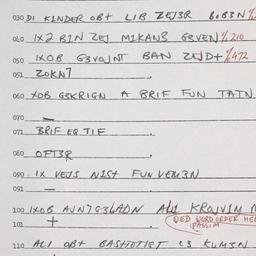 030 DI KINDER OBT LIB ZEJ3R
040 IX2 BIN ZEJ MIKANS G3VEN 210
050 IXOB G3VOJNT BAN ZEJD+ 472
051 ZOKN7
060 XOB G3KRIGN A BRIF FUN TATN
070
071 BRIF EQ TIF
080 OFT3R
090 IX VEJS NIST FUN VEM3N
091
100 IXOB AJN7G3LADN ALI KROJVIM
101 +
OED WORD ORDER HE
PASSIM
110 ALI OBT BASHTETIGT L3 KUM3N